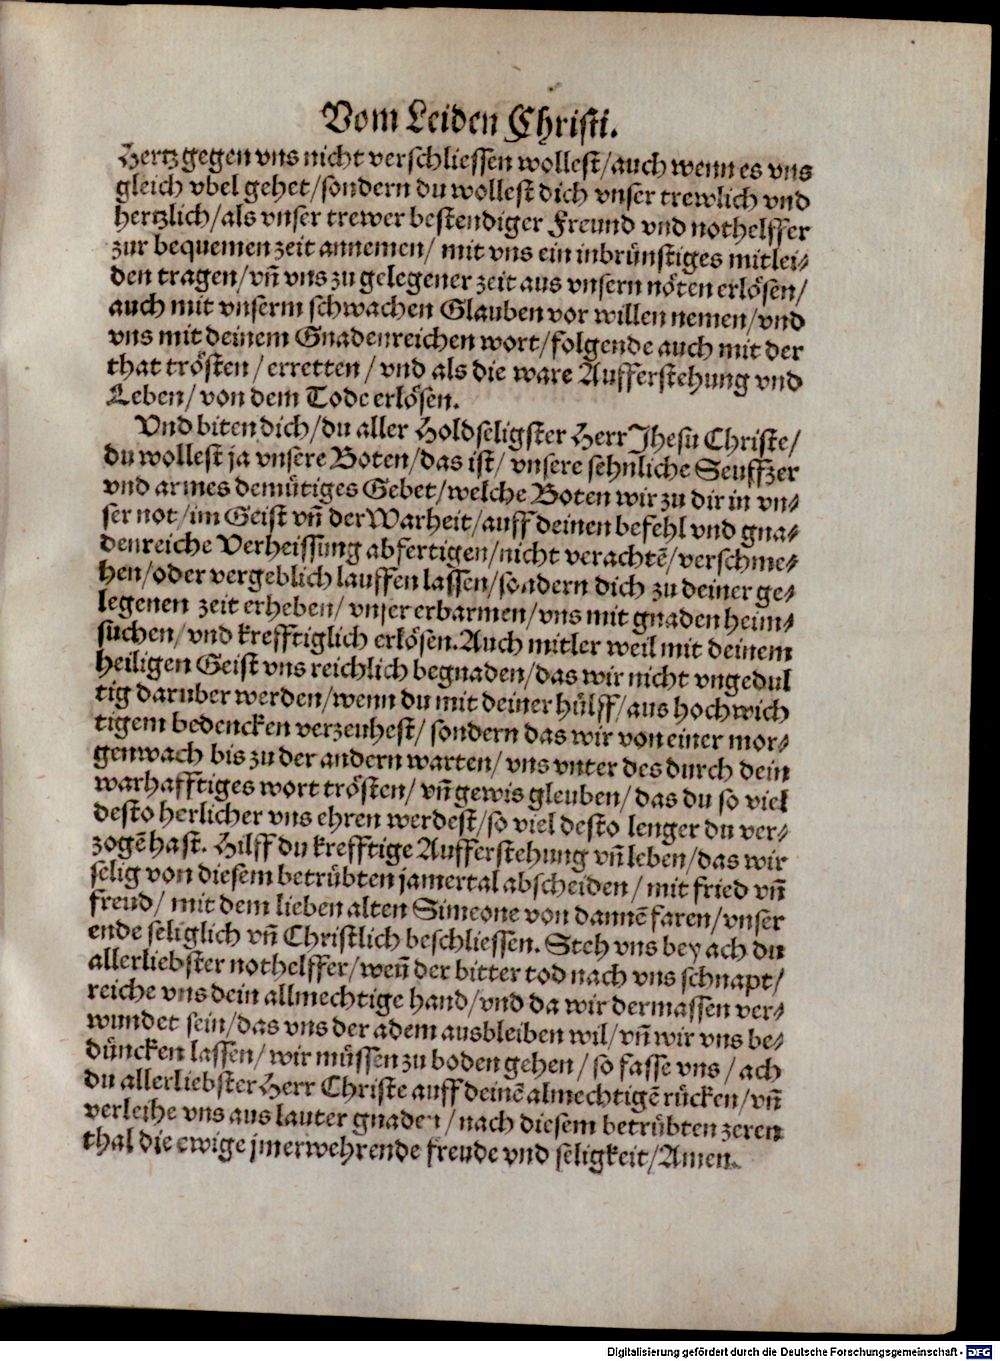 Vom Leiden Christi.
Hertz gegen vns nicht verschliessen wollest/auch wenn es vns
gleich vbel gehet/sondern du wollest dich vnser trewlich vnd
hertzlich/als vnser trewer bestendiger Freund vnd nothelffer
zur bequemen zeit annemen/ mit vns ein inbrünstiges mitlei-
den tragen/vñ vns zu gelegener zeit aus vnsern nöten erlösen/
auch mit vnserm schwachen Glauben vor willen nemen/vnd
vns mit deinem Gnadenreichen wort/folgende auch mit der
that trösten/ erretten/ vnd als die ware Aufferstehung vnd
Leben/ von dem Tode erlösen.
Vnd biten dich/du aller Holdseligster Herr Jhesu Christe/
du wollest ja vnsere Boten/das ist/ vnsere sehnliche Seuffzer
vnd armes demütiges Gebet/welche Boten wir zu dir in vn-
ser not/im Geist vñ der Warheit/auff deinen befehl vnd gna-
denreiche Verheissung abfertigen/nicht verachtẽ/verschme-
hen/oder vergeblich lauffen lassen/sondern dich zu deiner ge-
legenen zeit erheben/ vnser erbarmen/vns mit gnaden heim-
suchen/vnd krefftiglich erlösen. Auch mitler weil mit deinem
heiligen Geist vns reichlich begnaden/das wir nicht vngedul
tig daruber werden/wenn du mit deiner hülff/aus hochwich
tigem bedencken verzeuhest/ sondern das wir von einer mor-
genwach bis zu der andern warten/ vns vnter des durch dein
warhafftiges wort trösten/ vñ gewis gleuben/das du so viel
desto herlicher vns ehren werdest/so viel desto lenger du ver-
zogẽ hast. Hilff du krefftige Aufferstehung vñ leben/das wir
selig von diesem betrübten jamertal abscheiden/ mit fried vñ
freud/ mit dem lieben alten Simeone von dannẽ faren/vnser
ende seliglich vñ Christlich beschliessen. Steh vns bey ach du
allerliebster nothelffer/weñ der bitter tod nach vns schnapt/
reiche vns dein allmechtige hand/vnd da wir dermassen ver-
wundet sein/das vns der adem ausbleiben wil/vñ wir vns be-
düncken lassen/wir müssen zu boden gehen/ so fasse vns/ ach
du allerliebster Herr Christe auff deinẽ almechtigẽ rücken/vñ
verleihe vns aus lauter gnaden/ nach diesem betrübten zeren
thal die ewige jmerwehrende freude vnd seligkeit/Amen.
Digitalisierung gefördert durch die Deutsche Forschungsgemeinschaft - DFG